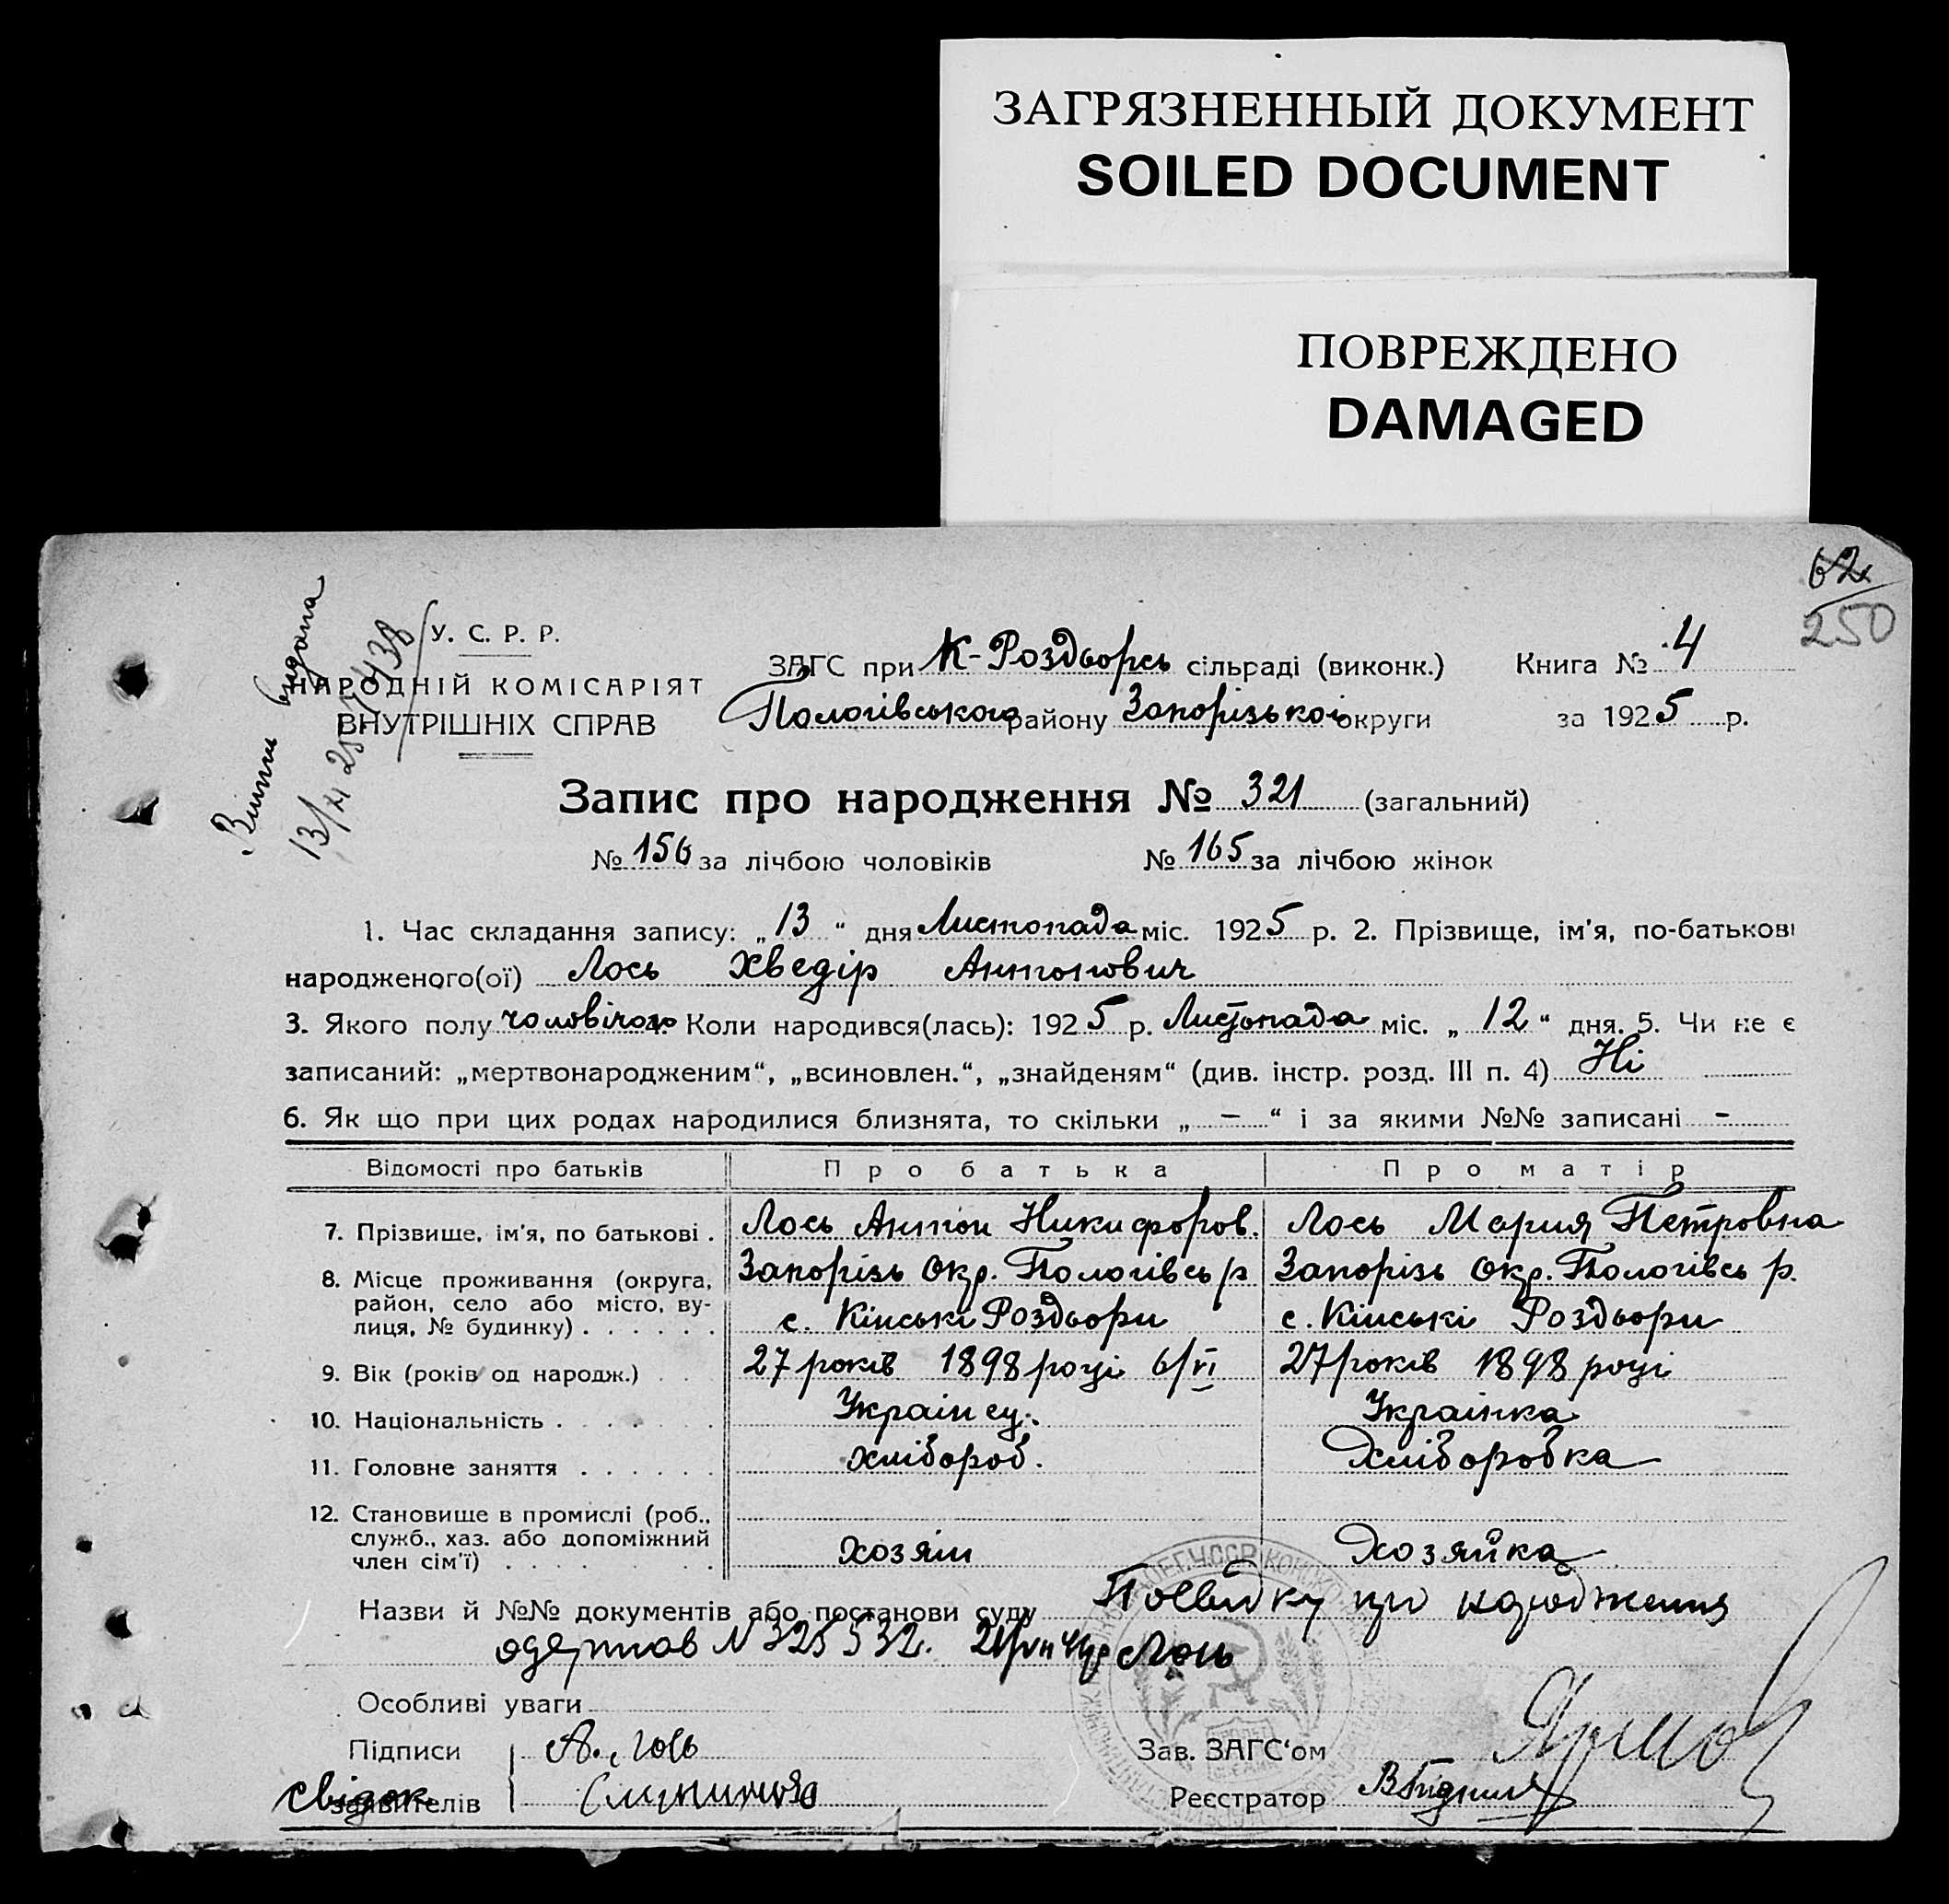 ЗАГРЯЗНЕННЫЙ ДОКУМЕНТ
SOILED DOCUMENT
ПОВРЕЖДЕНО
DAMAGED
62
250
Витяг видана
У. С. Р. Р.
НАРОДНІЙ КОМІСАРІЯТ
ВНУТРІШНІХ СПРАВ
ЗАГС при К-Роздорсь сільраді (виконк.) Книга № 4
Пологівського району Запорізької округи за 1925 р.
Запис про народження № 321 (загальний)
№ 156 за лічбою чоловіків № 165 за лічбою жінок
1. Час складання запису: „13“ дня Листопада міс. 1925 р. 2. Прізвище, ім'я, по-батькові
народженого(ої) Лось Хведір Антонович
3. Якого полу чоловічого 4. Коли народився(лась): 1925 р. Листопада міс. „12“ дня. 5. Чи не є
записаний: „мертвонародженим“, „всиновлен.“, „знайденям“ (див. інстр. розд. III п. 4) Ні
6. Як що при цих родах народилися близнята, то скільки „ – “ і за якими №№ записані –
Відомості про батьків Про батька Про матір
7. Прізвище, ім'я, по батькові . Лось Антон Никифоров. Лось Мария Петровна
8. Місце проживання (округа, район, село або місто, вулиця, № будинку) Запорізь окр. Пологівсь р Запорізь окр. Пологівсь р.
с. Кінські Роздори с. Кінські Роздори
9. Вік (років од народж.) 27 років 1898 році 6/VI 27 років 1898 році
10. Національність Українец. Українка
11. Головне заняття хлібороб. Хліборобка
12. Становище в промислі (роб., служб., хаз. або допоміжний член сім'ї) хозяін Хозяйка
Назви й №№ документів або постанови суду Посвідку про народження
одержав N 325532. Лось
Особливі уваги
Підписи А. Лось Зав. ЗАГС'ом
свідок заявителів Реєстратор